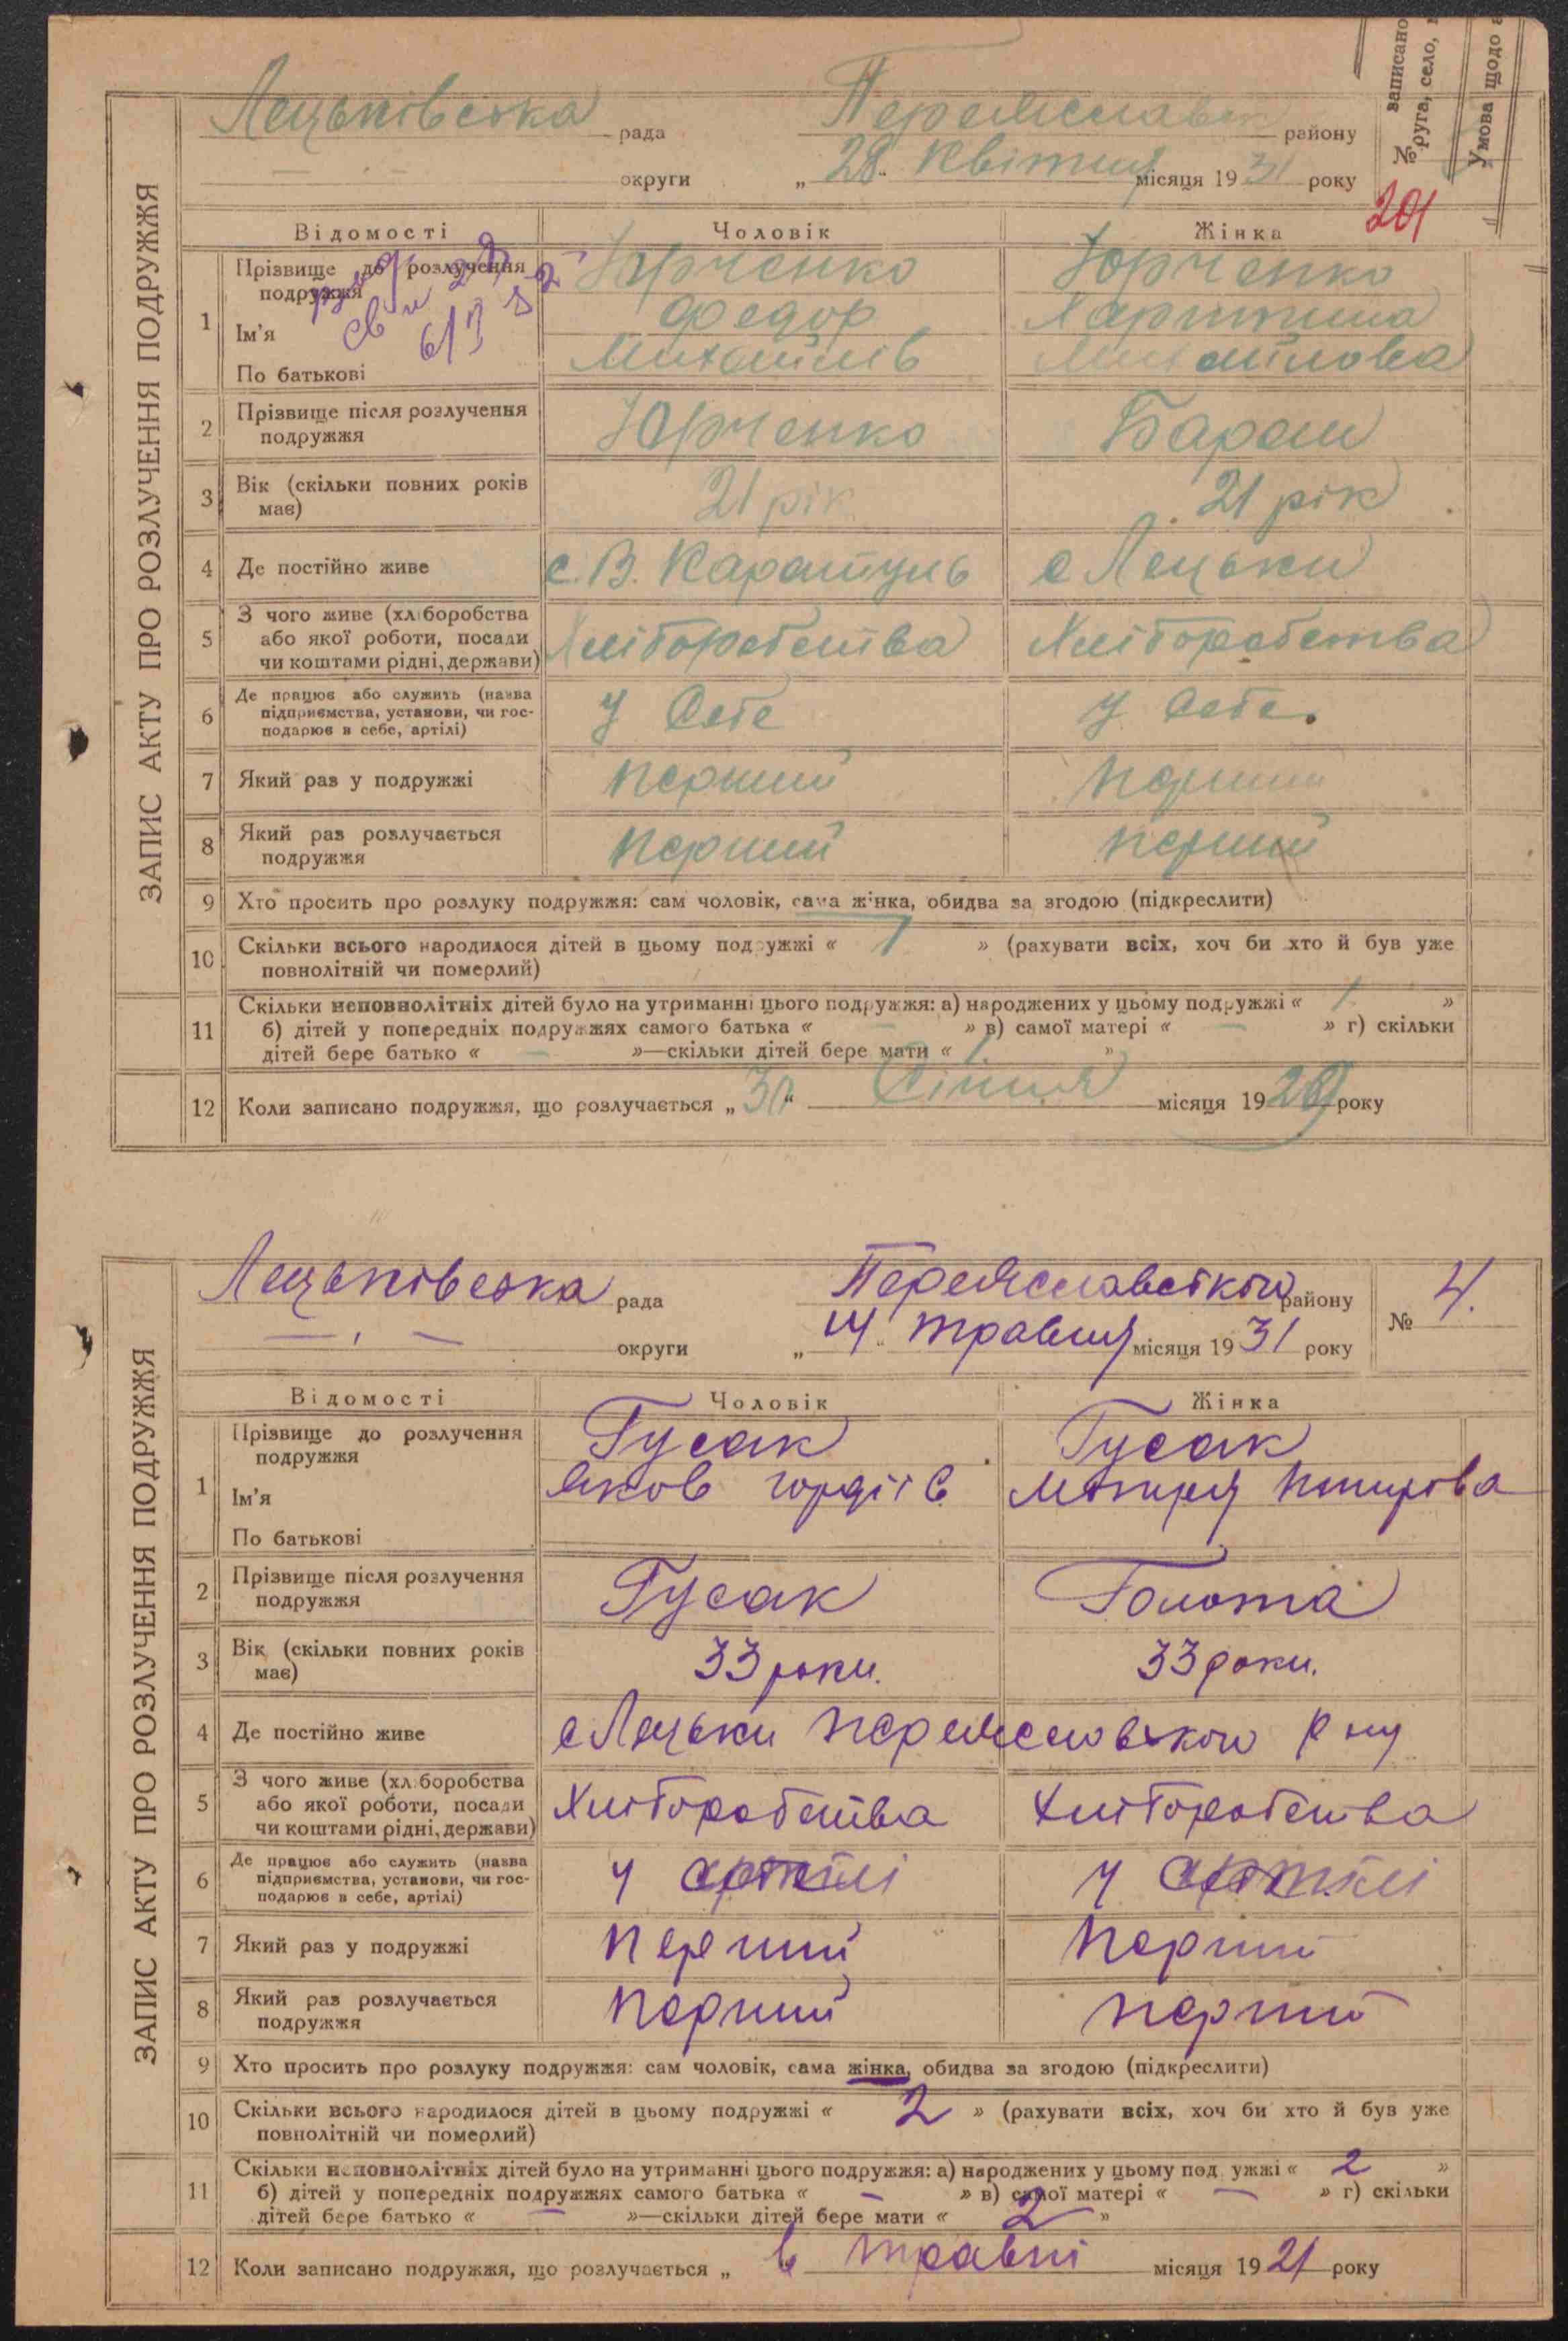 Лецьківська рада Переяславськ району
округи „28“ Квітня місяця 1931 року
№
записано
руга, село,
Умова щодо
201
ЗАПИС АКТУ ПРО РОЗЛУЧЕННЯ ПОДРУЖЖЯ
Відомості Чоловік Жінка
1 Прізвище до розлучення подружжя Юрченко Юрченко
Ім'я Федор Харитина
По батькові Михайлів Михайлова
2 Прізвище після розлучення
подружжя Юрченко Баран
3 Вік (скільки повних років
має) 21 рік 21 рік
4 Де постійно живе с. В. Каратуль с Лецьки
5 З чого живе (хліборобства
або якої роботи, посади
чи коштами рідні, держави) Хліборобства Хліборобства
6 Де працює або служить (назва
підприємства, установи, чи гос-
подарює в себе, артілі) у Себе у Себе.
7 Який раз у подружжі перший перший
8 Який раз розлучається
подружжя перший перший
9 Хто просить про розлуку подружжя: сам чоловік, сама жінка, обидва за згодою (підкреслити)
10 Скільки всього народилося дітей в цьому подружжі « 1 » (рахувати всіх, хоч би хто й був уже
повнолітній чи померлий)
11 Скільки неповнолітніх дітей було на утриманні цього подружжя: а) народжених у цьому подружжі « 1 »
б) дітей у попередніх подружжях самого батька « — » в) самої матері « — » г) скільки
дітей бере батько « — »—скільки дітей бере мати « 1. »
12 Коли записано подружжя, що розлучається „30“ Січня місяця 1929 року
Лецьківська рада Переяславського району
округи „14“ травня місяця 1931 року
№ 4.
ЗАПИС АКТУ ПРО РОЗЛУЧЕННЯ ПОДРУЖЖЯ
Відомості Чоловік Жінка
1 Прізвище до розлучення
подружжя Гусак Гусак
Ім'я Яков гордіїв Мотиря
По батькові
2 Прізвище після розлучення
подружжя Гусак Голота
3 Вік (скільки повних років
має) 33 роки. 33 роки.
4 Де постійно живе с Лецьки переяславського р ну
5 З чого живе (хліборобства
або якої роботи, посади
чи коштами рідні, держави) Хліборобства Хліборобства
6 Де працює або служить (назва
підприємства, установи, чи гос-
подарює в себе, артілі) у артілі у артілі
7 Який раз у подружжі перший перший
8 Який раз розлучається
подружжя перший перший
9 Хто просить про розлуку подружжя: сам чоловік, сама жінка, обидва за згодою (підкреслити)
10 Скільки всього народилося дітей в цьому подружжі « 2 » (рахувати всіх, хоч би хто й був уже
повнолітній чи померлий)
11 Скільки неповнолітніх дітей було на утриманні цього подружжя: а) народжених у цьому подружжі « 2 »
б) дітей у попередніх подружжях самого батька « — » в) самої матері « — » г) скільки
дітей бере батько « — »—скільки дітей бере мати « 2 »
12 Коли записано подружжя, що розлучається „ в травні місяця 1921 року